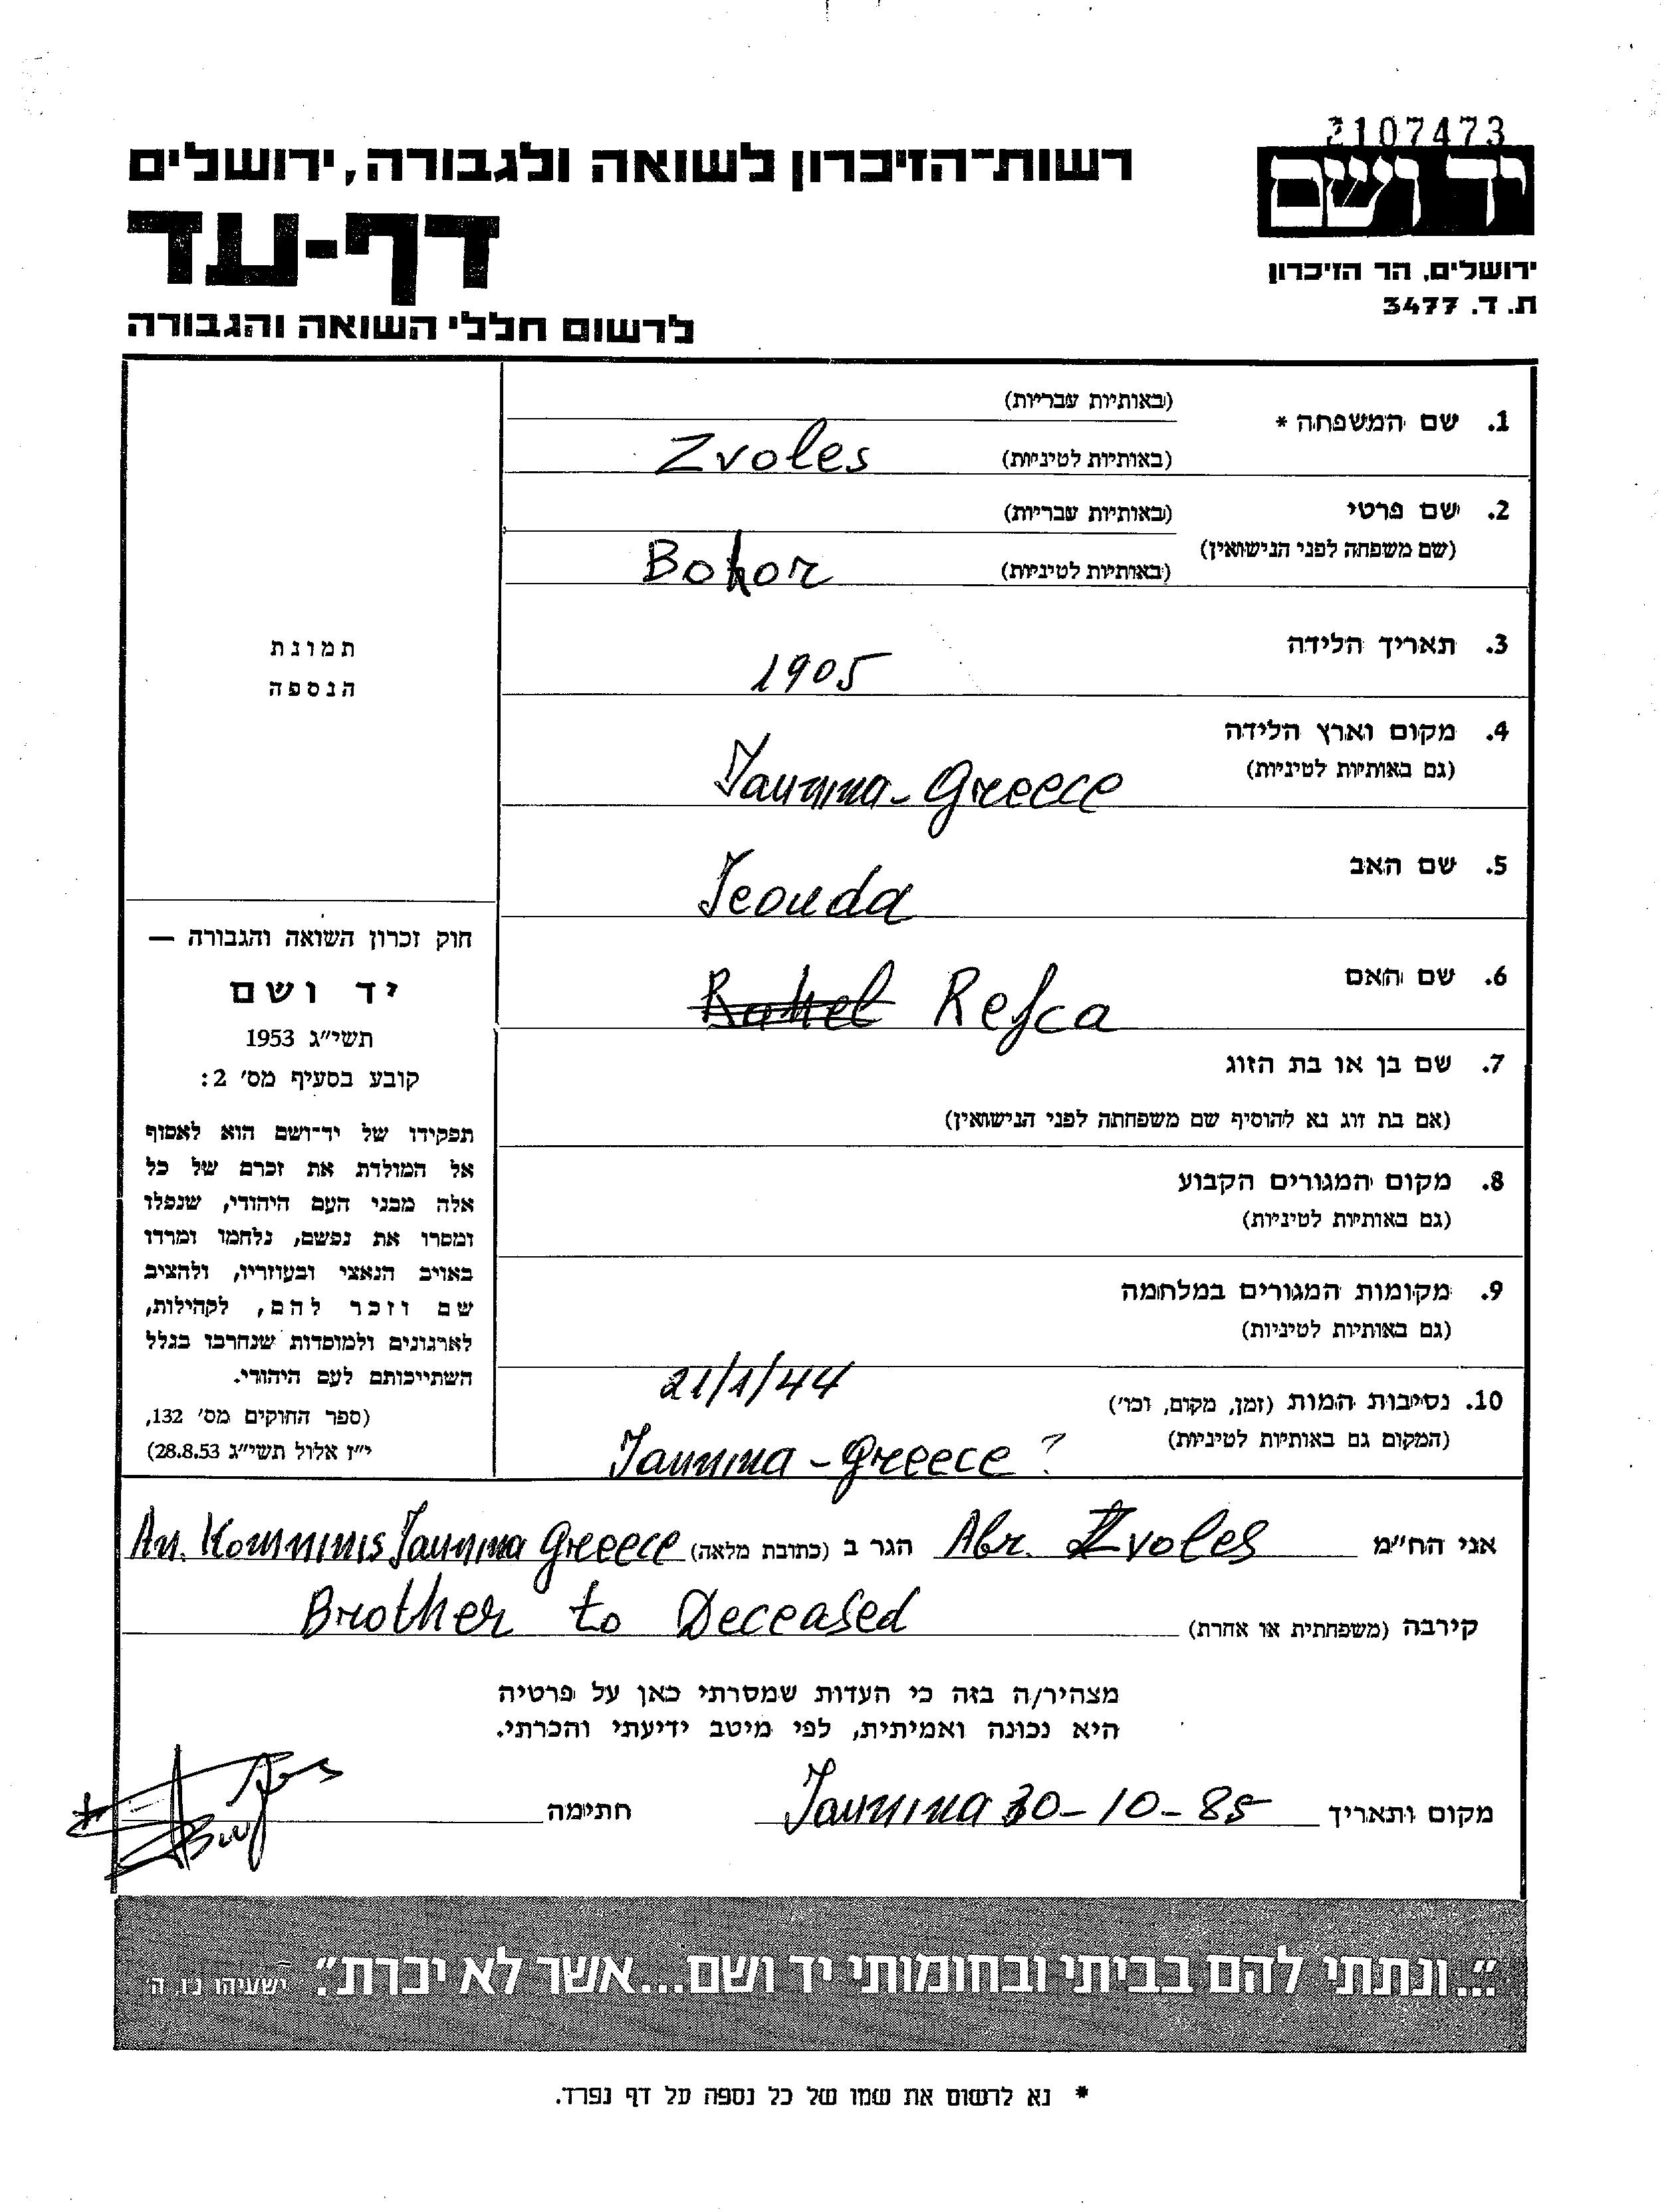 2107473
יד ושם
רשות-הזיכרון לשואה ולגבורה, ירושלים
דף-עד
ירושלים, הר הזיכרון
ת. ד. 3477
לרשום חללי השואה והגבורה
1. שם המשפחה *
(באותיות עבריות)
(באותיות לטיניות) Zvoles
2. שם פרטי
(באותיות עבריות)
(שם משפחה לפני הנישואין)
(באותיות לטיניות) Bohor
3. תאריך הלידה
1905
4. מקום וארץ הלידה
(גם באותיות לטיניות)
Iannina - Greece
5. שם האב
Jeouda
6. שם האם
Rahel Refca
7. שם בן או בת הזוג
(אם בת זוג נא להוסיף שם משפחתה לפני הנישואין)
8. מקום המגורים הקבוע
(גם באותיות לטיניות)
9. מקומות המגורים במלחמה
(גם באותיות לטיניות)
10. נסיבות המות (זמן, מקום, וכו')
21/1/44
(המקום גם באותיות לטיניות)
Iannina - Greece ?
תמונת
הנספה
חוק זכרון השואה והגבורה —
יד ושם
תשי"ג 1953
קובע בסעיף מס' 2:
תפקידו של יד-ושם הוא לאסוף
אל המולדת את זכרם של כל
אלה מבני העם היהודי, שנפלו
ומסרו את נפשם, נלחמו ומרדו
באויב הנאצי ובעוזריו, ולהציב
שם וזכר להם, לקהילות,
לארגונים ולמוסדות שנחרבו בגלל
השתייכותם לעם היהודי.
(ספר החוקים מס' 132,
י"ז אלול תשי"ג 28.8.53)
אני הח"מ Abr. Zvoles הגר ב (כתובת מלאה) An. Komninis Iannina Greece
קירבה (משפחתית או אחרת) Brother to Deceased
מצהיר/ה בזה כי העדות שמסרתי כאן על פרטיה
היא נכונה ואמיתית, לפי מיטב ידיעתי והכרתי.
מקום ותאריך Iannina 30-10-85 חתימה
"...ונתתי להם בביתי ובחומותי יד ושם...אשר לא יכרת". ישעיהו נ"ו, ה'
* נא לרשום את שמו של כל נספה על דף נפרד.